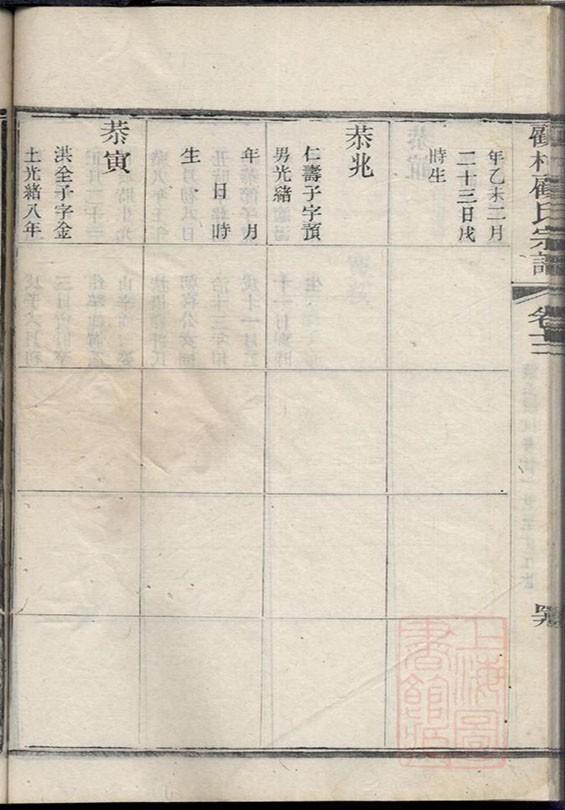 顧村顧氏宗譜
卷十二
年乙未二月
二十三日戌
時生
恭兆
仁壽子字預
男光緒
年　　月
　日　時
生
恭寅
洪全子字金
土光緒八年
上海圖
書館藏